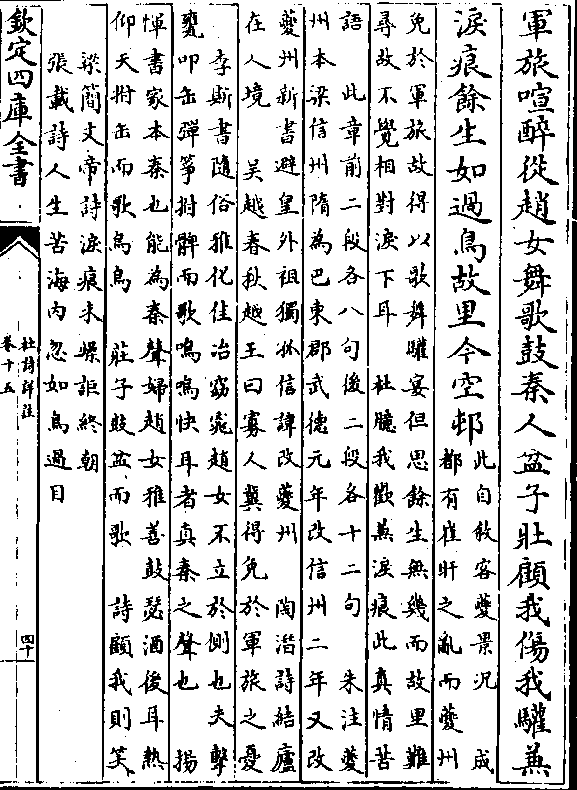 軍旅喧醉從趙女舞歌鼓秦人盆子壯顧我傷我驩兼
淚痕餘生如過鳥故里今空邨
此自敘客夔景况 成
都有崔旰之亂而夔州
免於軍旅故得以歌舞曜宴但思餘生無幾而故里難
尋故不覺相對淚下耳 杜臆我歡兼淚痕此真情苦
語 此章前二段各八句後二段各十二句 朱注夔
州本梁信州隋為巴東郡武德元年改信州二年又改
夔州新書避皇外祖獨孤信諱改夔州 陶潛詩結廬
在人境 吳越春秋越王曰寡人冀得免於軍旅之憂
李斯書隨俗雅化佳冶窈窕趙女不立於側也夫擊
甕叩缶彈箏拊髀而歌嗚嗚快耳者真秦之聲也 楊
惲書家本秦也能為秦聲婦趙女雅善鼓瑟酒後耳熱
仰天拊缶而歌烏烏 莊子鼓盆而歌 詩顧我則笑
梁簡文帝詩淚痕未燥詎終朝
張載詩人生苦海內忽如鳥過目
欽定四庫全書
杜詩詳註
卷十五
四十